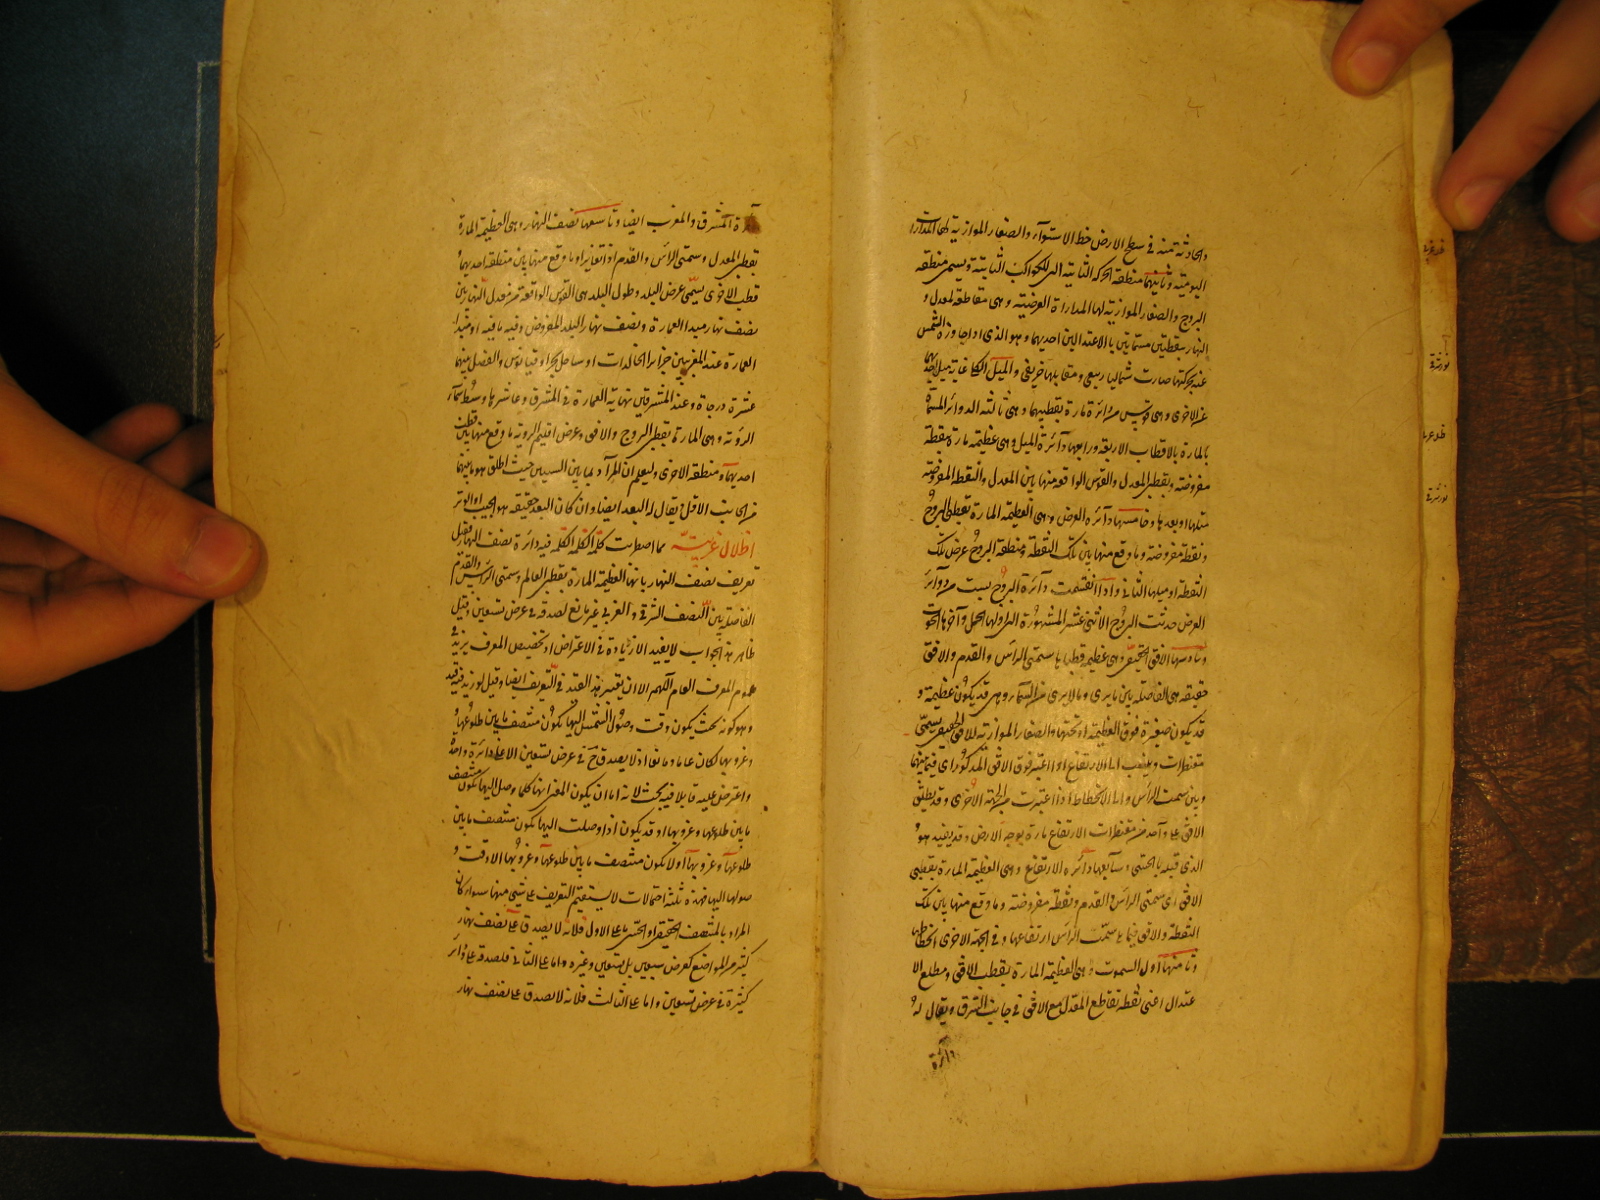 والحادثة منه في سطح الارض خط الاستواء والصغار الموازية لها المدارات
اليومية وثانيهما منطقة الحركة الثانية التي للكواكب الثابتة ويسمى منطقة
البروج والصغار الموازية لها المدارات العرضية وهى مقاطعة لمعدل و
النهار بنقطتين مسميتين بالاعتدالين احديهما وهو الذى اذا جاوزه الشمس
عنه بحركتها صارت شماليا ربيعى ومقابلها خريفى والميل الكلى غاية ميل احديهما
عن الاخرى وهى قوس من دائرة مارة بقطبيهما وهى ثالثة الدوائر المسماة
بالمارة بالاقطاب الاربعة ورابعها دائرة الميل وهى عظيمة مارة بنقطة
مفروضة وبقطبى المعدل والقوس الواقعة منها بين المعدل والنقطة المفروضة
ميلها او بعدها وخامسها دائرة العرض وهى العظيمة المارة بقطبى البروج
ونقطة مفروضة وما وقع منها بين تلك النقطة ومنطقة البروج عرض تلك
النقطة او ميلها الثانى واذا انقسمت دائرة البروج بست من دوائر
العرض حدثت البروج الاثنى عشر المشهورة التى اولها الحمل وآخرها الحوت
وسادسها الافق الحقيقى وهى عظيمة قطباها سمتى الرأس والقدم والافق
حقيقة هى الفاصلة بين ما يرى وما لا يرى من السماء وهى قد يكون عظيمة و
قد يكون صغيرة فوق العظيمة او تحتها والصغار الموازية للافق الحقيقى يسمى
مقنطرات وينسب الى الارتفاع اذا اعتبر فوق الافق المذكور اى فيما بينها
وبين سمت الرأس والى الانحطاط اذا اعتبرت من الجهة الاخرى وقد يطلق
الافق على واحد من مقنطرات الارتفاع مارة بوجه الارض وقد يقيد هو
الذى قبله بالحسى وسابعها دائرة الارتفاع وهى العظيمة المارة بقطبى
الافق اى سمتى الرأس والقدم ونقطة مفروضة وما وقع منها بين تلك
النقطة والافق فيما يلى سمت الرأس ارتفاعها وفى الجهة الاخرى انحطاطها
وثامنها اول السموت وهى العظيمة المارة بقطب الافق ومطلع الا
عتدال اعنى نقطة تقاطع المعدل مع الافق فى جانب الشرق ويقال له
دائرة
دائرة المشرق والمغرب ايضا وتاسعها نصف النهار وهى العظيمة المارة
بقطبى المعدل وسمتى الرأس والقدم اذا تغايرا وما وقع منها بين منطقة احديهما و
قطب الاخرى يسمى عرض البلد وطول البلد هى القوس الواقعة من معدل النهار بين
نصف نهار مبدا العمارة ونصف نهار البلد المفروض وفيه ما فيه او مبدا
العمارة عند المغربيين جزاير الخالدات او ساحل بحر اوقيانوس والفصل بينهما
عشرة درجاة وعند المشرقيين نهاية العمارة فى المشرق وعاشرها وسط سماء
الرؤية وهى المارة بقطبى البروج والافق وعرض اقليم الروية ما وقع منها بين قطب
احديهما ومنطقة الاخرى وليعلم ان المراد بما بين الشيئين حيث اطلق هو ما بينهما
من الجانب الاقل ويقال له البعد ايضا وان كان البعد حقيقة هو الجيب او الوتر
اظلال غريبة مما اضطربت كلمة الكلمة فيه دائرة نصف النهار فقيل
تعريف نصف النهار بانها العظيمة المارة بقطبى العالم وسمتى الرأس والقدم
الفاصلة بين النصف الشرقى والغربى غير مانع لصدقه فى عرض تسعين وقيل
ظاهر هذا الجواب لا يفيد الا زيادة فى الاعتراض اذ تخصيص المعرف يزيد فى
عموم المعرف العام اللهم الا ان يعتبر هذا القيد فى التعريف ايضا وقيل لو زيد فيه قيد
وهو كونه بحيث يكون وقت وصول الشمس اليها يكون منتصف ما بين طلوعها و
وغروبها لكان عاما ومانعا اذ لا يصدق ح فى عرض تسعين الا على دائرة واحدة
واعترض عليه قايلا فيه بحث لانه اما ان يكون المعنى انها كلما وصل اليها يكون منتصف
ما بين طلوعها وغروبها او قد يكون اذا وصلت اليها يكون منتصف ما بين
طلوعها وغروبها او لا يكون منتصف ما بين طلوعها وغروبها الا وقت و
صولها اليها فهذه ثلثة احتمالات لا يستقيم التعريف على شئ منها سواء كان
المراد بالمنتصف الحقيقى او الحسى اما على الاول فلانه لا يصدق على نصف نهار
كثير من المواضع كعرض سبعين بل تسعين وغيره واما على الثانى فلصدقه على دوائر
كثيرة فى عرض تسعين واما على الثالث فلانه لا يصدق على نصف نهار